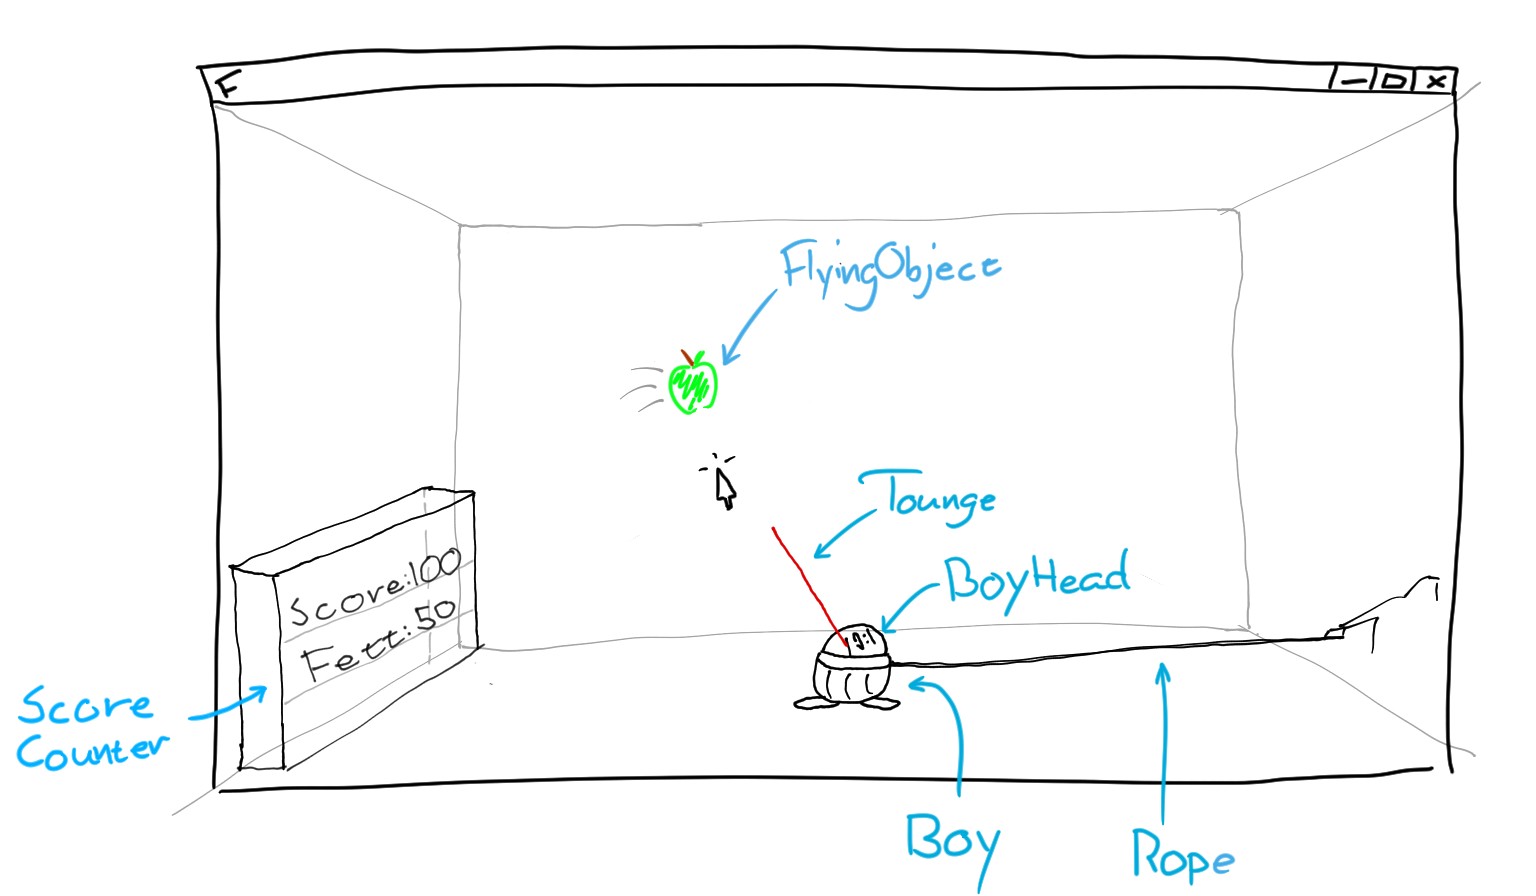 F
FlyingObject
Tounge
BoyHead
Score:100
Fett:50
Score
Counter
Boy
Rope